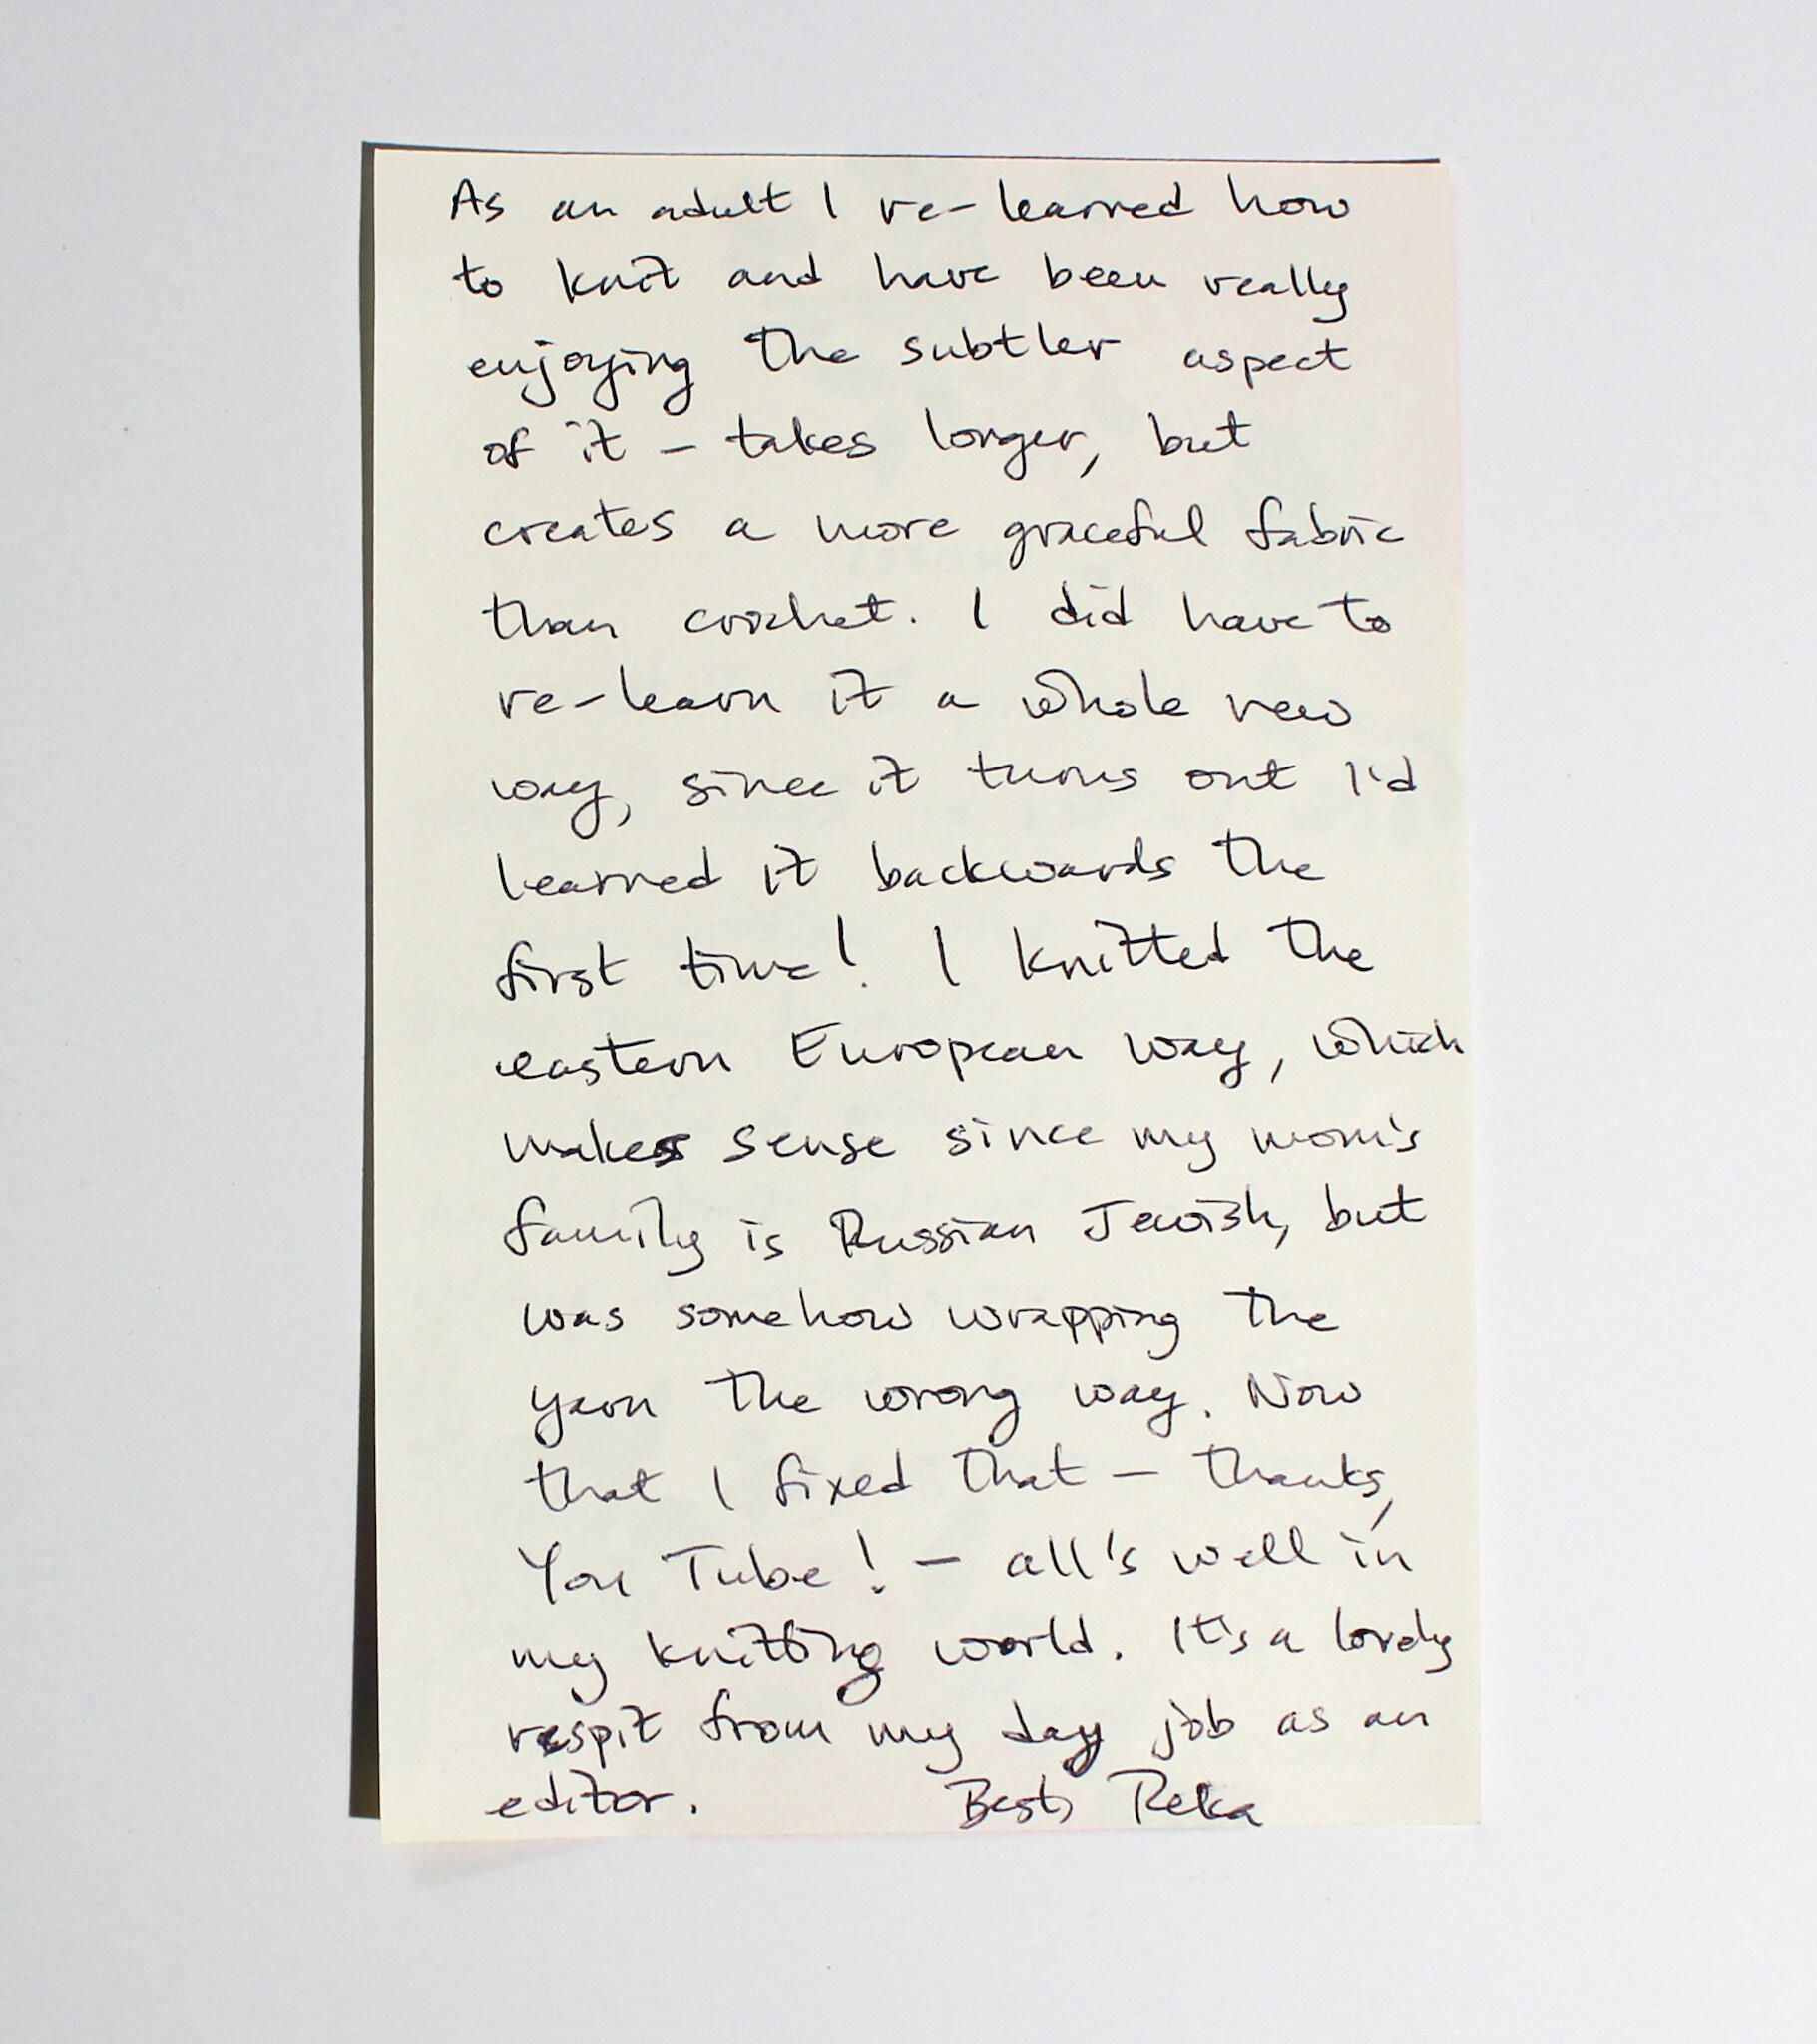 As an adult I re-learned how
to knit and have been really
enjoying the subtler aspect
of it – takes longer, but
creates a more graceful fabric
than crochet. I did have to
re-learn it a whole new
way, since it turns out I'd
learned it backwards the
first time! I knitted the
eastern European way, which
makes sense since my mom's
family is Russian Jewish, but
was somehow wrapping the
yarn the wrong way. Now
that I fixed that – thanks,
You Tube! – all's well in
my knitting world. It's a lovely
respit from my day job as an
editor. Best, Reka